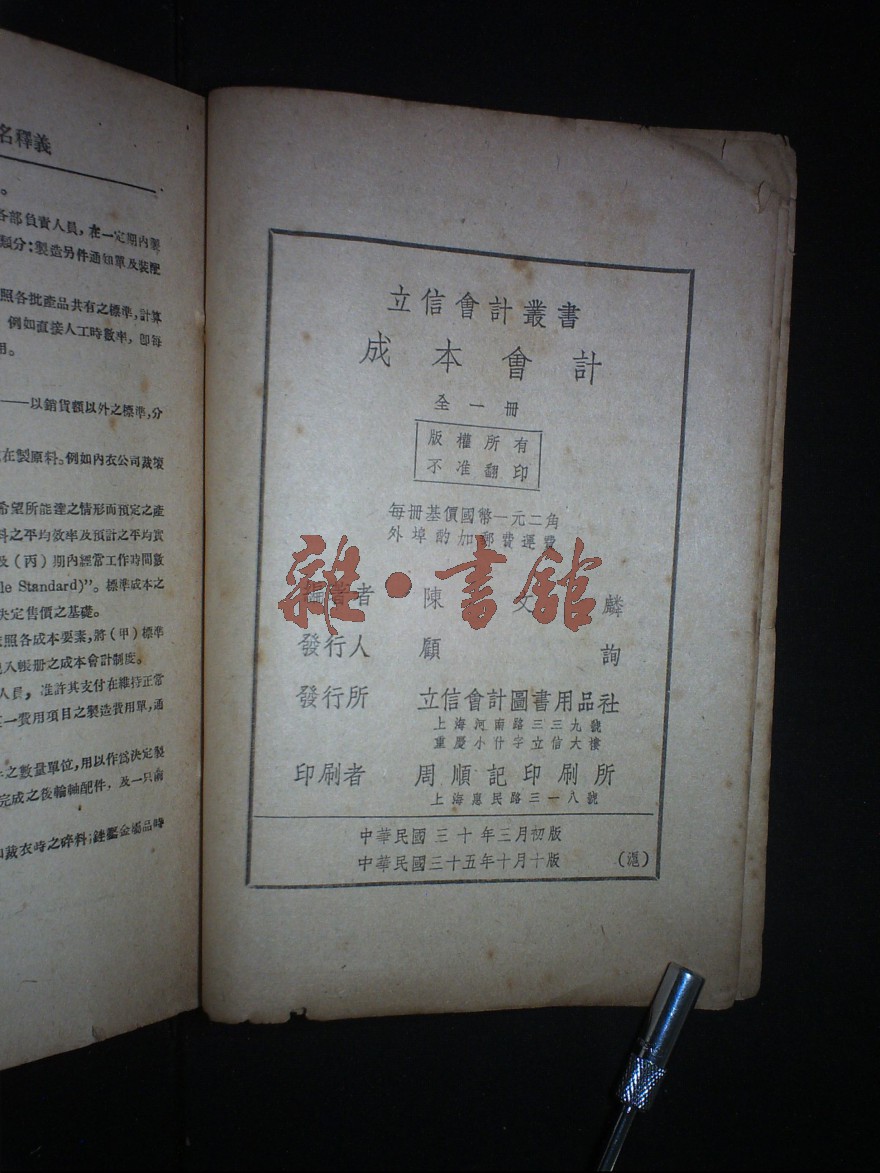 名釋義
。
各部負責人員，在一定期內製
類分：製造另件通知單及裝配
照各批產品共有之標準，計算
例如直接人工時數率，卽每
用。
——以銷貨額以外之標準，分
在製原料。例如內衣公司裁製
希望所能達之情形而預定之產
料之平均效率及預計之平均實
及（丙）期內經常工作時間數
le Standard)”。標準成本之
決定售價之基礎。
照各成本要素，將（甲）標準
入帳册之成本會計制度。
人員，准許其支付在維持正常
一費用項目之製造費用單，通
之數量單位，用以作爲決定製
完成之後輪軸配件，及一只南
裁衣時之碎料；銼鑿金屬品時
立信會計叢書
成本會計
全一冊
版權所有
不准翻印
每冊基價國幣一元二角
外埠酌加郵費運費
編著者 陳文麟
發行人 顧詢
發行所 立信會計圖書用品社
上海河南路三三九號
重慶小什字立信大樓
印刷者 周順記印刷所
上海惠民路三一八號
中華民國三十年三月初版
中華民國三十五年十月十版 （滬）
雜·書館